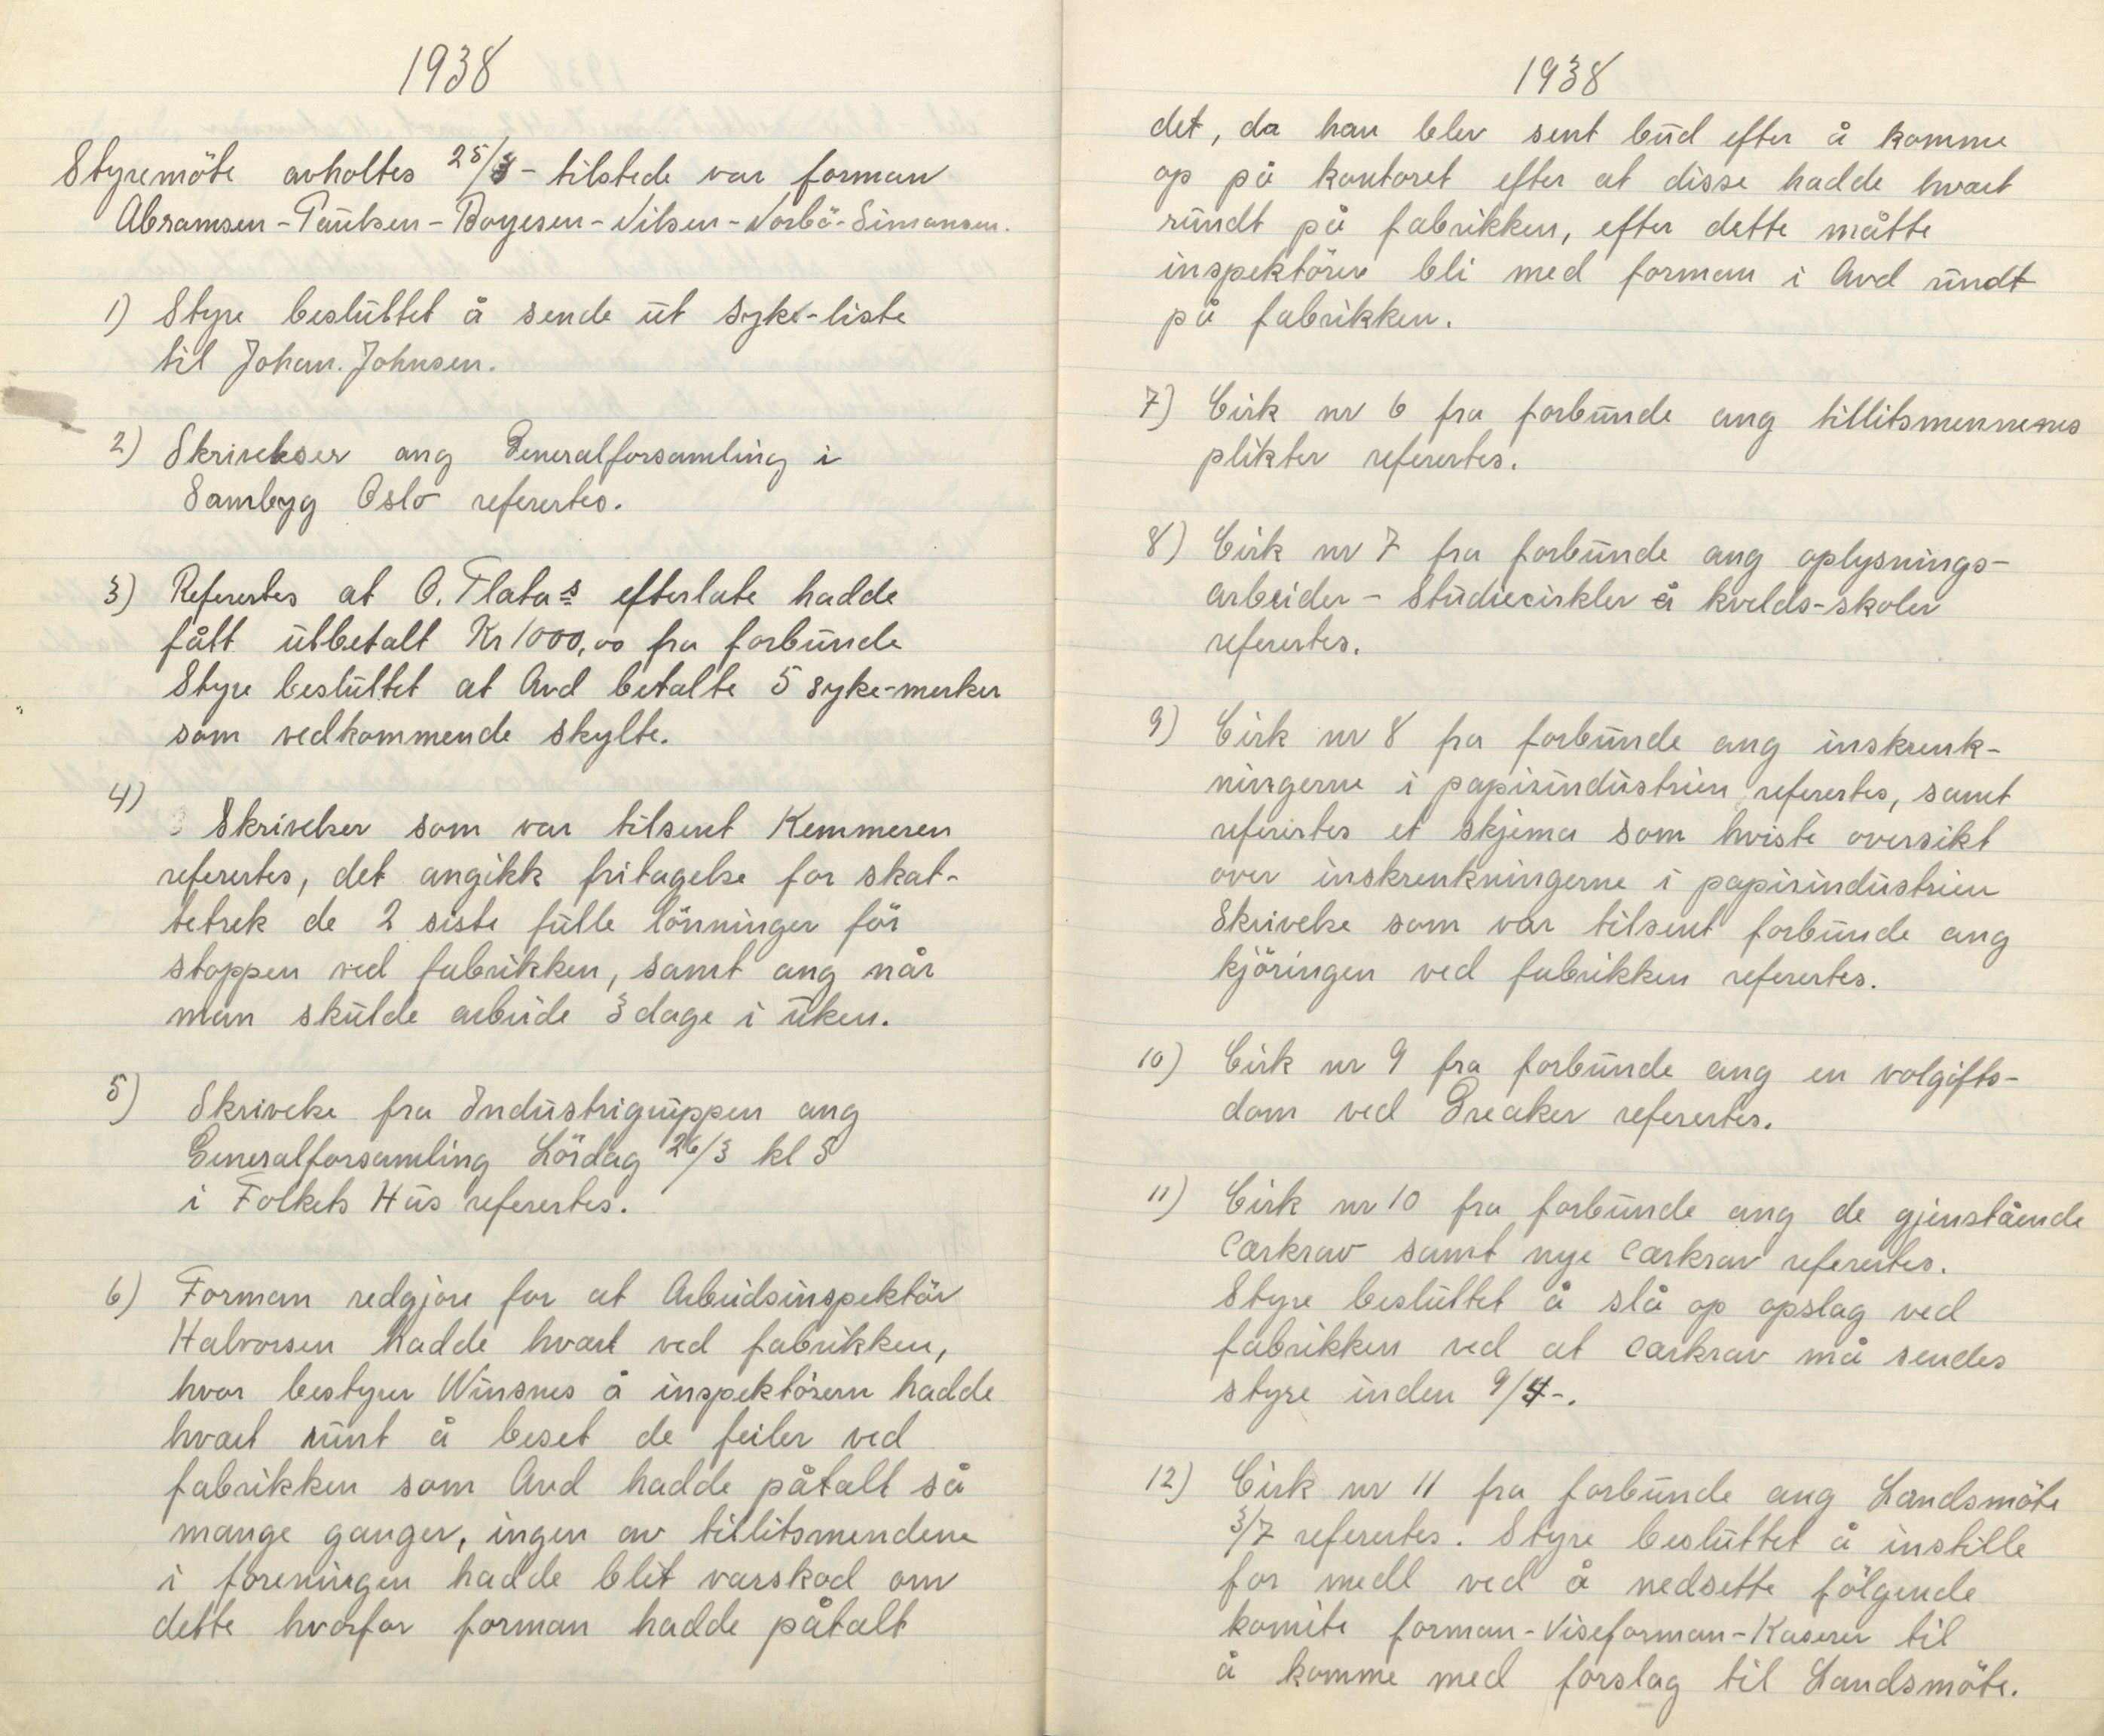 1938
Styremöte avholtes 25/3 - tilstede var forman
Abramsen - Paulsen - Boyesen - Nilsen - Norbö - Simonsen.
1) Styre besluttet å sende ut syke-liste
til Johan. Johnsen.
2) Skrivelser ang Generalforsamling i
Sambyg Oslo referertes.
3) Referertes at O. Flata's efterlate hadde
fått utbetalt Kr 1000,00 fra forbunde
Styre besluttet at Avd betalte 5 syke-merker
som vedkommende skylte.
4)
Skrivelser som var tilsent Kemneren
referertes, det angikk fritagelse for skat-
tetrek de 2 siste fulle lönninger för
stoppen ved fabrikken, samt ang når
man skulde arbeide 3 dage i uken.
5) Skrivelse fra Industrigruppen ang
Generalforsamling Lördag 26/3 kl 5
i Folkets Hus referertes.
6) Forman redgjore for at Arbeidsinspektör
Halvorsen hadde hvært ved fabrikken,
hvor bestyrer Winsnes å inspektörern hadde
hvært runt å beset de feiler ved
fabrikken som Avd hadde påtalt så
mange ganger, ingen av tillitsmendene
i foreningen hadde blit varskod om
dette hvorfor forman hadde påtalt
1938
det, da han blev sent bud efter å komme
op på kontoret efter at disse hadde hvært
rundt på fabrikken, efter dette måtte
inspektören bli med forman i Avd rundt
på fabrikken.
7) Cirk nr 6 fra forbunde ang tillitsmennenes
plikter referertes.
8) Cirk nr 7 fra forbunde ang oplysnings-
arbeider - Studiecirkler å kvelds-skoler
referertes.
9) Cirk nr 8 fra forbunde ang inskrenk-
ningerne i papirindustrien referertes, samt
referertes et skjema som hviste oversikt
over inskrenkningerne i papirindustrien
Skrivelse som var tilsent forbunde ang
kjöringen ved fabrikken referertes.
10) Cirk nr 9 fra forbunde ang en volgifts-
dom ved Greaker referertes.
11) Cirk nr 10 fra forbunde ang de gjenstående
særkrav samt nye særkrav referertes.
Styre besluttet å slå op opslag ved
fabrikken ved at særkrav må sendes
styre inden 9/4-.
12) Cirk nr 11 fra forbunde ang Landsmöte
3/7 referertes. Styre besluttet å instille
for medl ved å nedsette fölgende
komite forman - Viseforman - Kaserer til
å komme med forslag til Landsmöte.